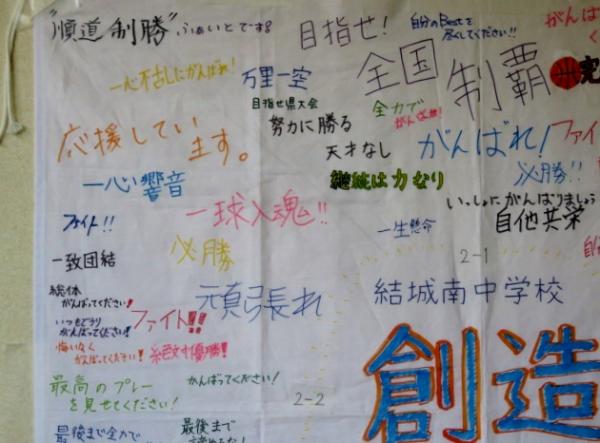 "順道制勝" ふぁいとです!
目指せ!
自分のBestを
尽くしてください!!
がんばれ
一心不乱にがんばれ!
万里一空
全国制覇
目指せ県大会
全力で
がんばれ!
努力に勝る
天才なし
応援してい
ます。
がんばれ!
ファイ
必勝!!
一心響音
継続は力なり
いっしょにがんばりましょう
自他共栄
ファイト!!
一球入魂!!
一生懸命
必勝
2-1
一致団結
総体
がんばってください!
頑張れ
結城南中学校
いつもどうり
がんばってください!
ファイト!!
悔いなく
がんばってください!
絶対優勝!
創造
最高のプレー
を見せてください!
がんばってください!
2-2
最後まで全力で
最後まで